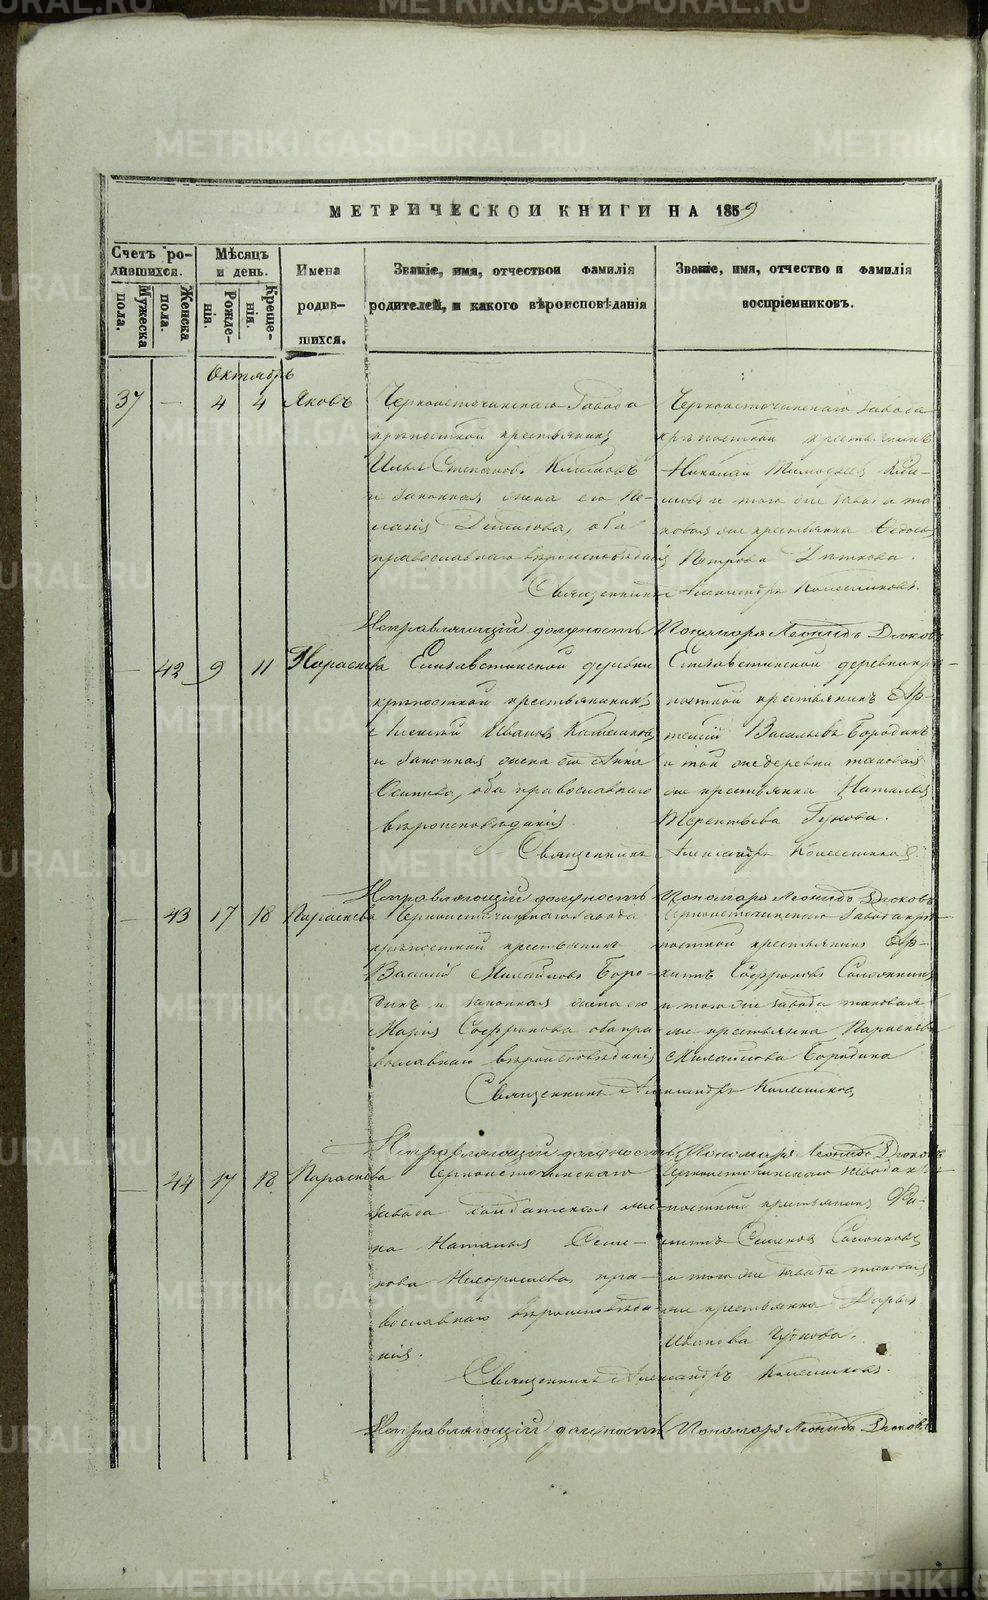 МЕТРИЧЕСКОЙ КНИГИ НА 1859
Счетъ ро-
дившихся.
Мужеска
пола.
Женска
пола.
Мѣсяцъ
и день.
Рожде-
нія.
Креще-
нія.
Имена
родив-
шихся.
Званіе, имя, отчество и фамилія
родителей, и какого вѣроисповѣданія
Званіе, имя, отчество и фамилія
воспріемниковъ.
Октябрь
37 — 4 4 Яковъ
Черноисточинскаго Завода
крѣпостной крестьянинъ
Илья Степановъ
и законная жена его Пе-
лагія оба
православнаго вѣроисповѣданія
Черноисточинскаго завода
крѣпостной крестьянинъ
Николай
и того же завода та
ковая же крестьянка Ѳедосья
Петрова
Священникъ Александръ Колесниковъ.
Исправляющій должность Пономаря Леонидъ Дюковъ
— 42 9 11 Параскева
Елизаветинской деревни
крѣпостной крестьянинъ
Алексѣй Ивановъ
и законная жена его Анна
Осипова, оба православнаго
вѣроисповѣданія
Елизаветинской деревни крѣ-
постной крестьянинъ Ар-
темій Васильевъ Бородинъ
и той же деревни таковая
же крестьянка Наталья
Терентьева
Священникъ Александръ Колесниковъ
Исправляющій должность Пономаря Леонидъ Дюковъ
— 43 17 18 Параскева
Черноисточинскаго завода
крѣпостной крестьянинъ
Василій Михайловъ Боро-
динъ и законная жена его
Марія Софронова оба пра
вославнаго вѣроисповѣданія
Черноисточинскаго Завода крѣ-
постной крестьянинъ
Софроновъ
и того же завода таковая
же крестьянка Параскева
Михайлова Бородина
Священникъ Александръ Колесниковъ
Исправляющій должность Пономаря Леонидъ Дюковъ
— 44 17 18 Параскева
Черноисточинскаго
завода солдатская же-
на Наталья Семе-
нова пра-
вославнаго вѣроисповѣда-
нія.
Черноисточинскаго завода крѣ-
постной крестьянинъ Фи-
Семеновъ
и того же завода таковая
же крестьянка Дарья
Иванова
Священникъ Александръ Колесниковъ.
Исправляющій должность Пономаря Леонидъ Дюковъ
METRIKI.GASO-URAL.RU